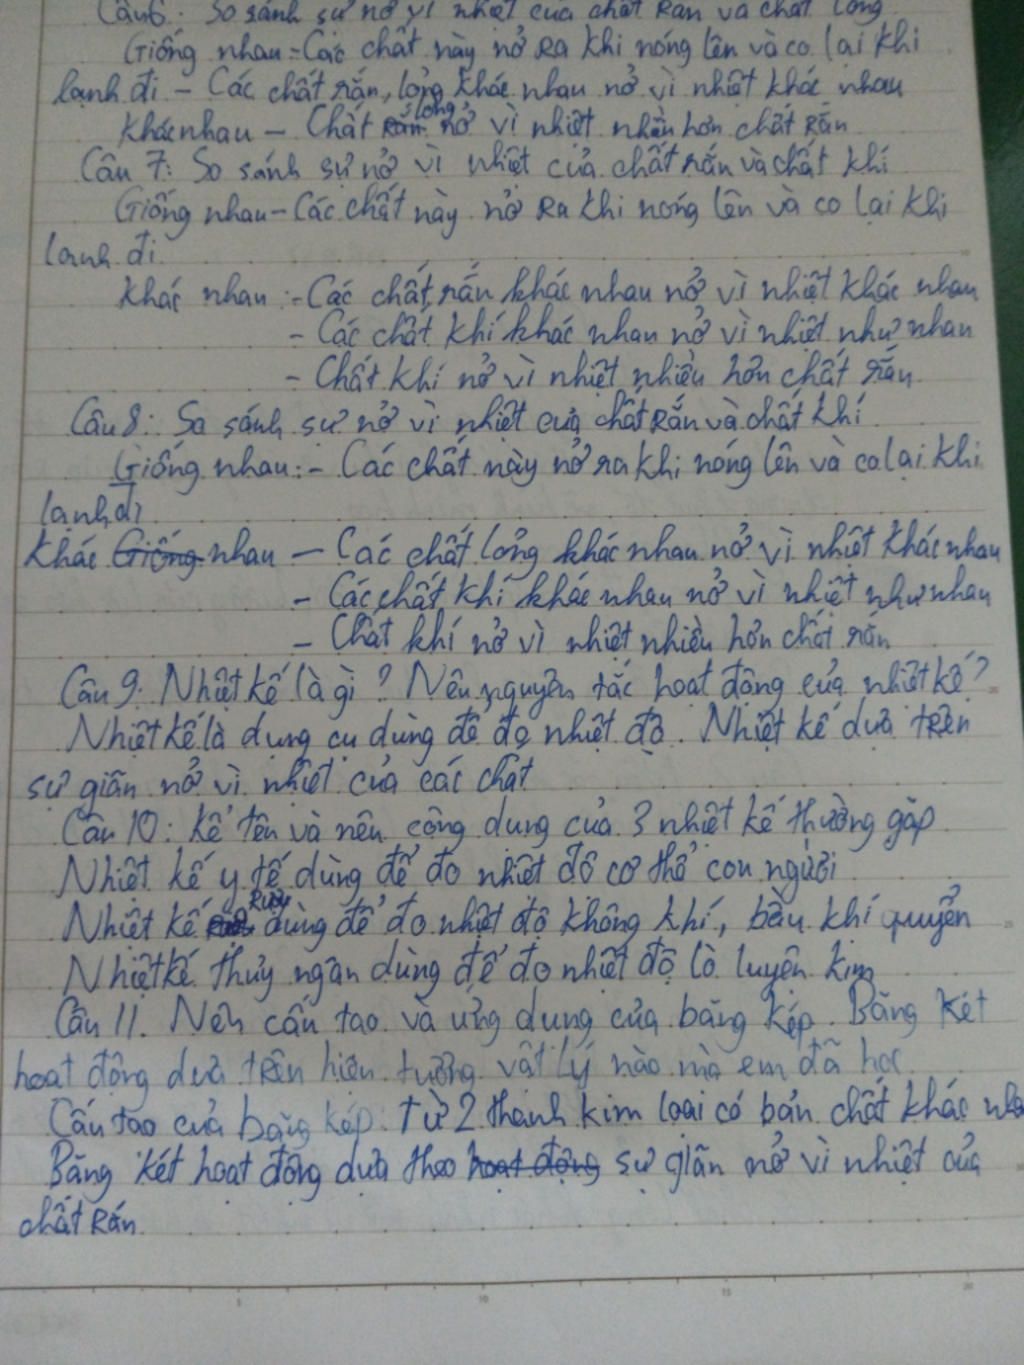 Câu 6: So sánh sự nở vì nhiệt của chất Rắn và chất lỏng
Giống nhau - Các chất này nở ra khi nóng lên và co lại khi
lạnh đi - Các chất rắn, lỏng khác nhau nở vì nhiệt khác nhau
khác nhau - Chất rắn lỏng nở vì nhiệt nhiều hơn chất Rắn
Câu 7: So sánh sự nở vì nhiệt của chất rắn và chất khí
Giống nhau - Các chất này nở Ra khi nóng lên và co lại khi
lạnh đi
khác nhau: - Các chất rắn khác nhau nở vì nhiệt khác nhau
- Các chất khí khác nhau nở vì nhiệt như nhau
- Chất khí nở vì nhiệt nhiều hơn chất rắn
Câu 8: So sánh sự nở vì nhiệt của chất Rắn và chất khí
Giống nhau: - Các chất này nở ra khi nóng lên và co lại khi
lạnh đi
khác Giống nhau - Các chất lỏng khác nhau nở vì nhiệt khác nhau
- Các chất khí khác nhau nở vì nhiệt như nhau
- Chất khí nở vì nhiệt nhiều hơn chất rắn
Câu 9. Nhiệt kế là gì? Nêu nguyên tắc hoạt động của nhiệt kế?
Nhiệt kế là dụng cụ dùng để đo nhiệt độ. Nhiệt kế dựa trên
sự giãn nở vì nhiệt của các chất
Câu 10: kể tên và nêu công dụng của 3 nhiệt kế thường gặp
Nhiệt kế y tế dùng để đo nhiệt độ cơ thể con người
Nhiệt kế Rượu dùng để đo nhiệt độ không khí, bầu khí quyển
Nhiệt kế thủy ngân dùng để đo nhiệt độ lò luyện kim
Câu 11. Nêu cấu tạo và ứng dụng của băng kép. Băng két
hoạt động dựa trên hiện tượng vật lý nào mà em đã học
Cấu tạo của băng kép: Từ 2 thanh kim loại có bản chất khác nha
Băng két hoạt động dựa theo hoạt động sự giãn nở vì nhiệt của
chất Rắn
5 10 15 20